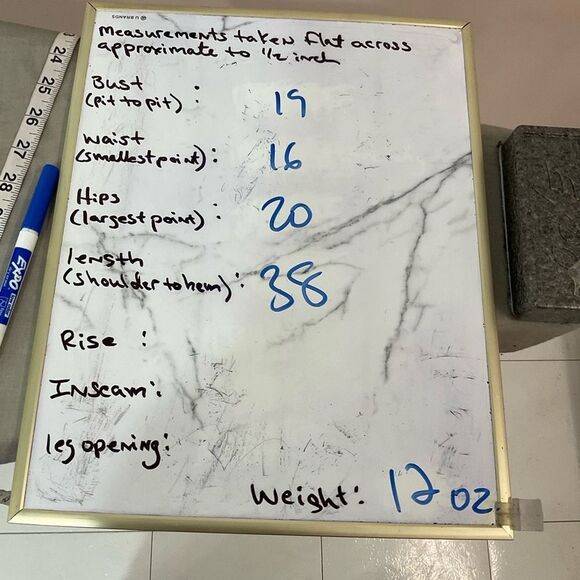 U BRANDS
measurements taken flat across
approximate to 1/2 inch
Bust
(pit to pit) : 19
waist
(smallest point) : 16
Hips
(largest point) : 20
length
(shoulder to hem) : 38
Rise :
Inseam :
leg opening :
Weight : 12 oz
24
25
26
27
28
EXPO